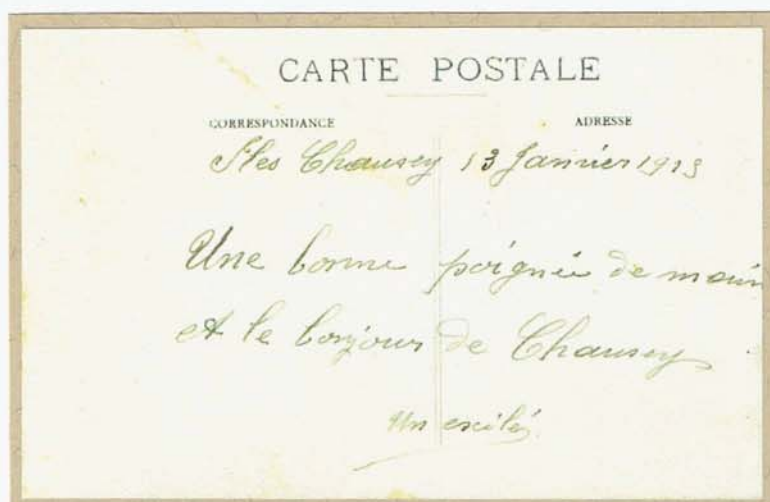 CARTE POSTALE
CORRESPONDANCE ADRESSE
Iles Chausey 13 Janvier 1913
Une bonne poignée de main
et le bonjour de Chausey
Un exilé